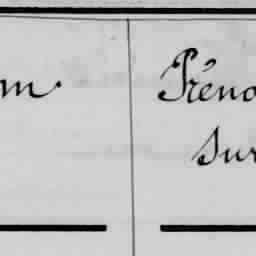 m.
Préno
Sur